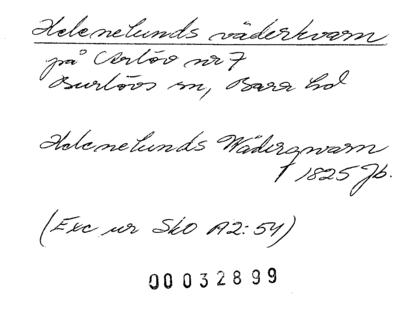 Helenelunds väderkvarn
på Arlöv nr 7
Burlövs sn, Bara hd
Helenelunds Wäderqwarn
† 1825 Jb.
(Exc ur SkO A2:54)
00032899